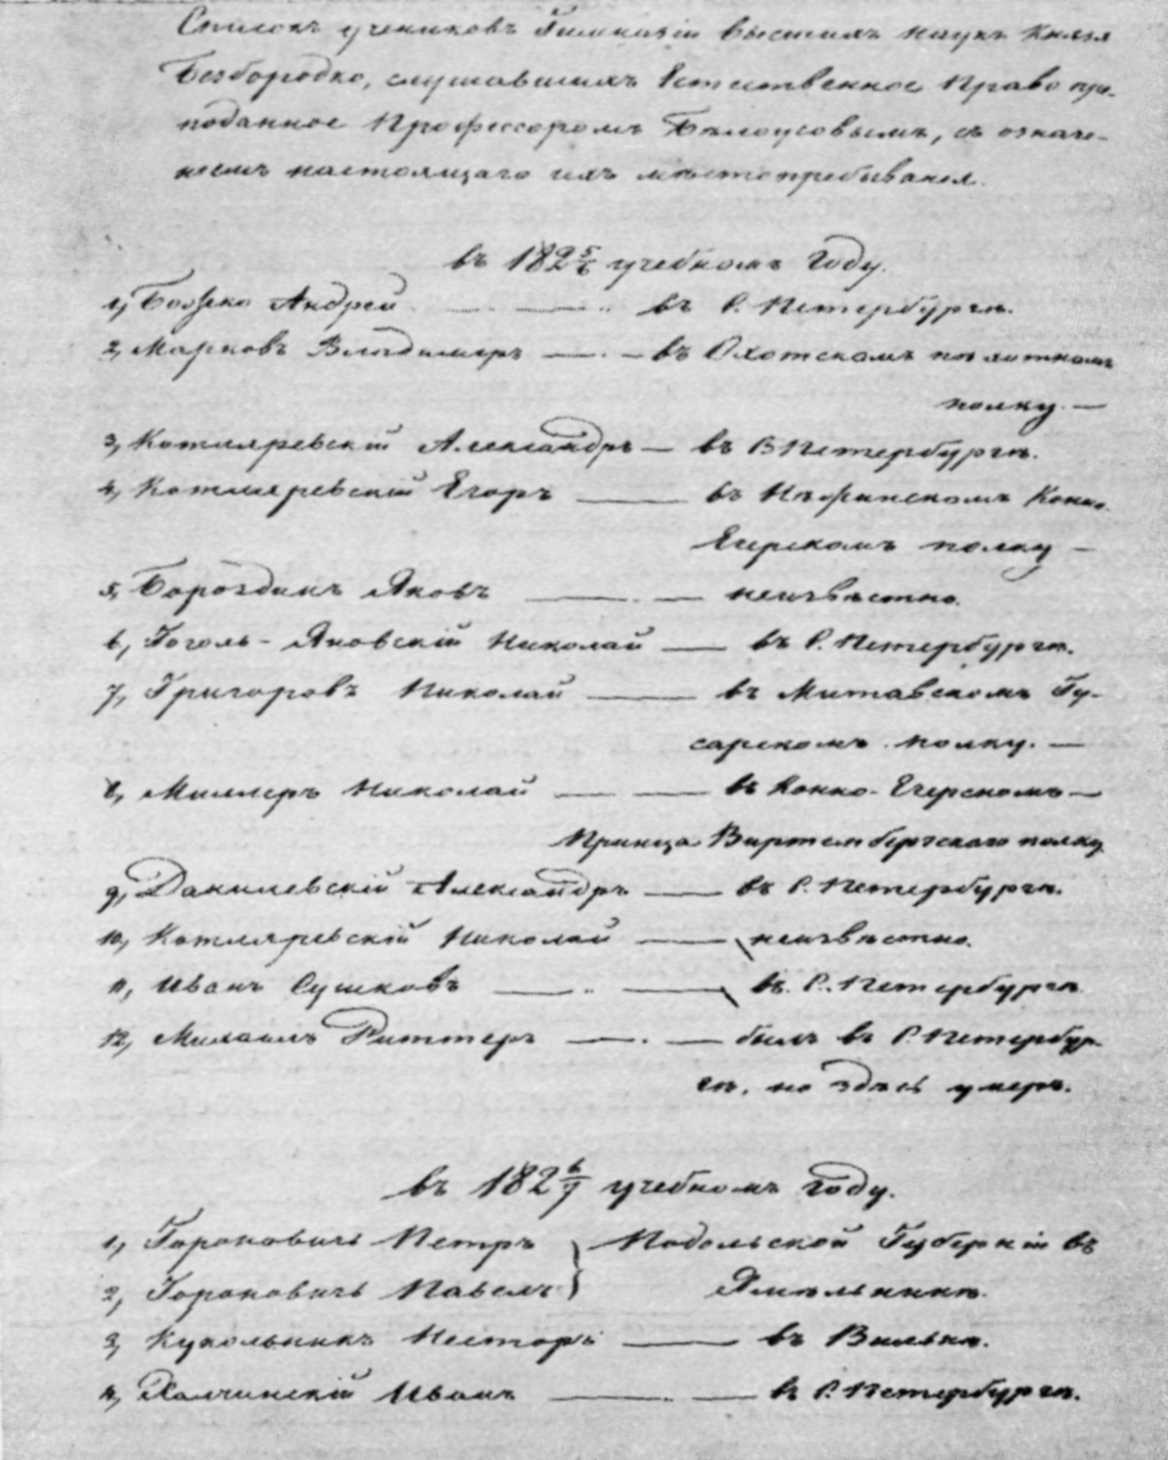 Списокъ учениковъ Гимназіи высшихъ наукъ Князя
Безбородко, слушавшихъ Естественное Право пре-
поданное Профессоромъ Бѣлоусовымъ, съ означе-
ніемъ настоящаго ихъ мѣстопребыванія.
въ 182 5/6 учебномъ году.
1, Божко Андрей — въ С. Петербургѣ.
2, Марковъ Владимиръ — въ Охотскомъ пѣхотномъ
полку. —
3, Котляревскій Александръ — въ С. Петербургѣ.
4, Котляревскій Егоръ — въ Нѣжинскомъ Конно-
Егерскомъ полку —
5, Бороздинъ Яковъ — неизвѣстно.
6, Гоголь-Яновскій Николай — въ С. Петербургѣ.
7, Григоровъ Николай — въ Митавскомъ Гу-
сарскомъ полку. —
8, Миллеръ Николай — въ Конно-Егерскомъ —
Принца Виртембергскаго полку
9, Данилевскій Александръ — въ С. Петербургѣ.
10, Котляревскій Николай — неизвѣстно.
11, Иванъ Сушковъ — въ С. Петербургѣ
12, Михаилъ Риттеръ — былъ въ С. Петербур-
гѣ, но здѣсь умеръ.
въ 182 6/7 учебномъ году.
1, Гороновичь Петръ } Подольской Губерніи въ
2, Гороновичь Павелъ } Ямполѣ
3, Кукольникъ Несторъ — въ Вильнѣ.
4, Халчинскій Иванъ — въ С. Петербургѣ.